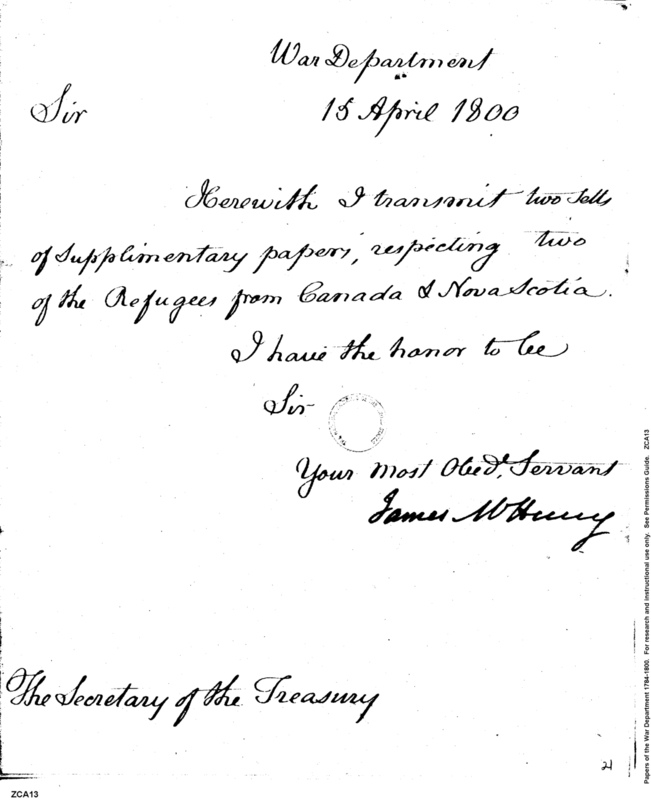 War Department
15 April 1800
Sir
Herewith I transmit two setts
of Supplimentary papers, respecting two
of the Refugees from Canada & Nova Scotia.
I have the honor to be
Sir
Your most Obedt. Servant
James McHenry
The Secretary of the Treasury
21
ZCA13
Papers of the War Department 1784-1800. For research and instructional use only. See Permissions Guide. ZCA13